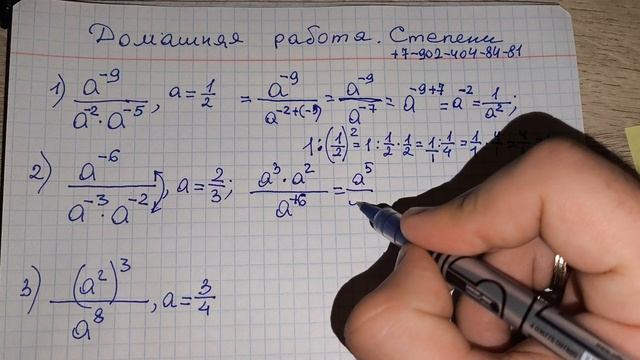 Домашняя работа. Степени
+7-902-404-84-81
1) a⁻⁹ / (a⁻² · a⁻⁵), a = 1/2 = a⁻⁹ / a⁻²⁺⁽⁻⁵⁾ = a⁻⁹ / a⁻⁷ = a⁻⁹⁺⁷ = a⁻² = 1/a²;
1 : (1/2)² = 1 : 1/2 · 1/2 = 1/1 : 1/4 = 1/1 · 4/1 =
2) a⁻⁶ / (a⁻³ · a⁻²), a = 2/3; (a³ · a²) / a⁺⁶ = a⁵
3) (a²)³ / a⁸, a = 3/4